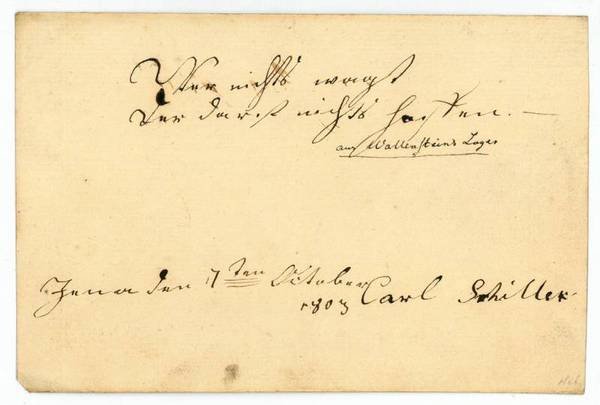 Wer nichts wagt
Der darf nichts hoffen. —
aus Wallensteins Lager
Jena den 7ten October
1803 Carl Schiller